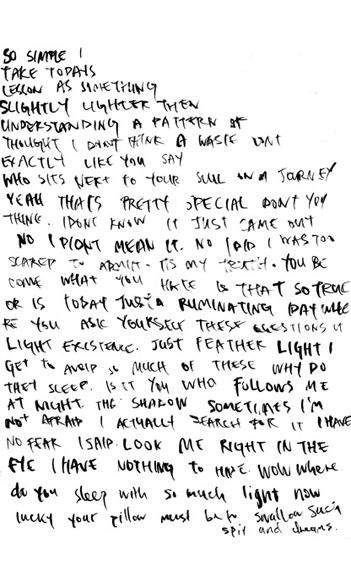 SO SIMPLE I
TAKE TODAYS
LESSON AS SOMETHING
SLIGHTLY LIGHTER THEN
UNDERSTANDING A PATTERN OF
THOUGHT I DONT THINK A WASTE DONT
EXACTLY LIKE YOU SAY
WHO SITS NEXT TO YOUR SOUL ON A JOURNEY
YEAH THATS PRETTY SPECIAL DONT YOU
THINK. I DONT KNOW IT JUST CAME OUT
NO I DIDNT MEAN IT. NO I DID I WAS TOO
SCARED TO ADMIT. TIS MY TRUTH. YOU BE
COME WHAT YOU HATE IS THAT SO TRUE
OR IS TODAY JUST A RUMINATING DAY WHE
RE YOU ASK YOURSELF THESE QUESTIONS
LIGHT EXISTENCE. JUST FEATHER LIGHT I
GET TO AVOID SO MUCH OF THESE WHY DO
THEY SLEEP. IS IT YOU WHO FOLLOWS ME
AT NIGHT. THE SHADOW SOMETIMES I'M
NOT AFRAID I ACTUALLY SEARCH FOR IT I HAVE
NO FEAR I SAID. LOOK ME RIGHT IN THE
EYE I HAVE NOTHING TO HIDE. WOW WHERE
do you sleep with so much light now
lucky your pillow must be to swallow such
spit and dreams.